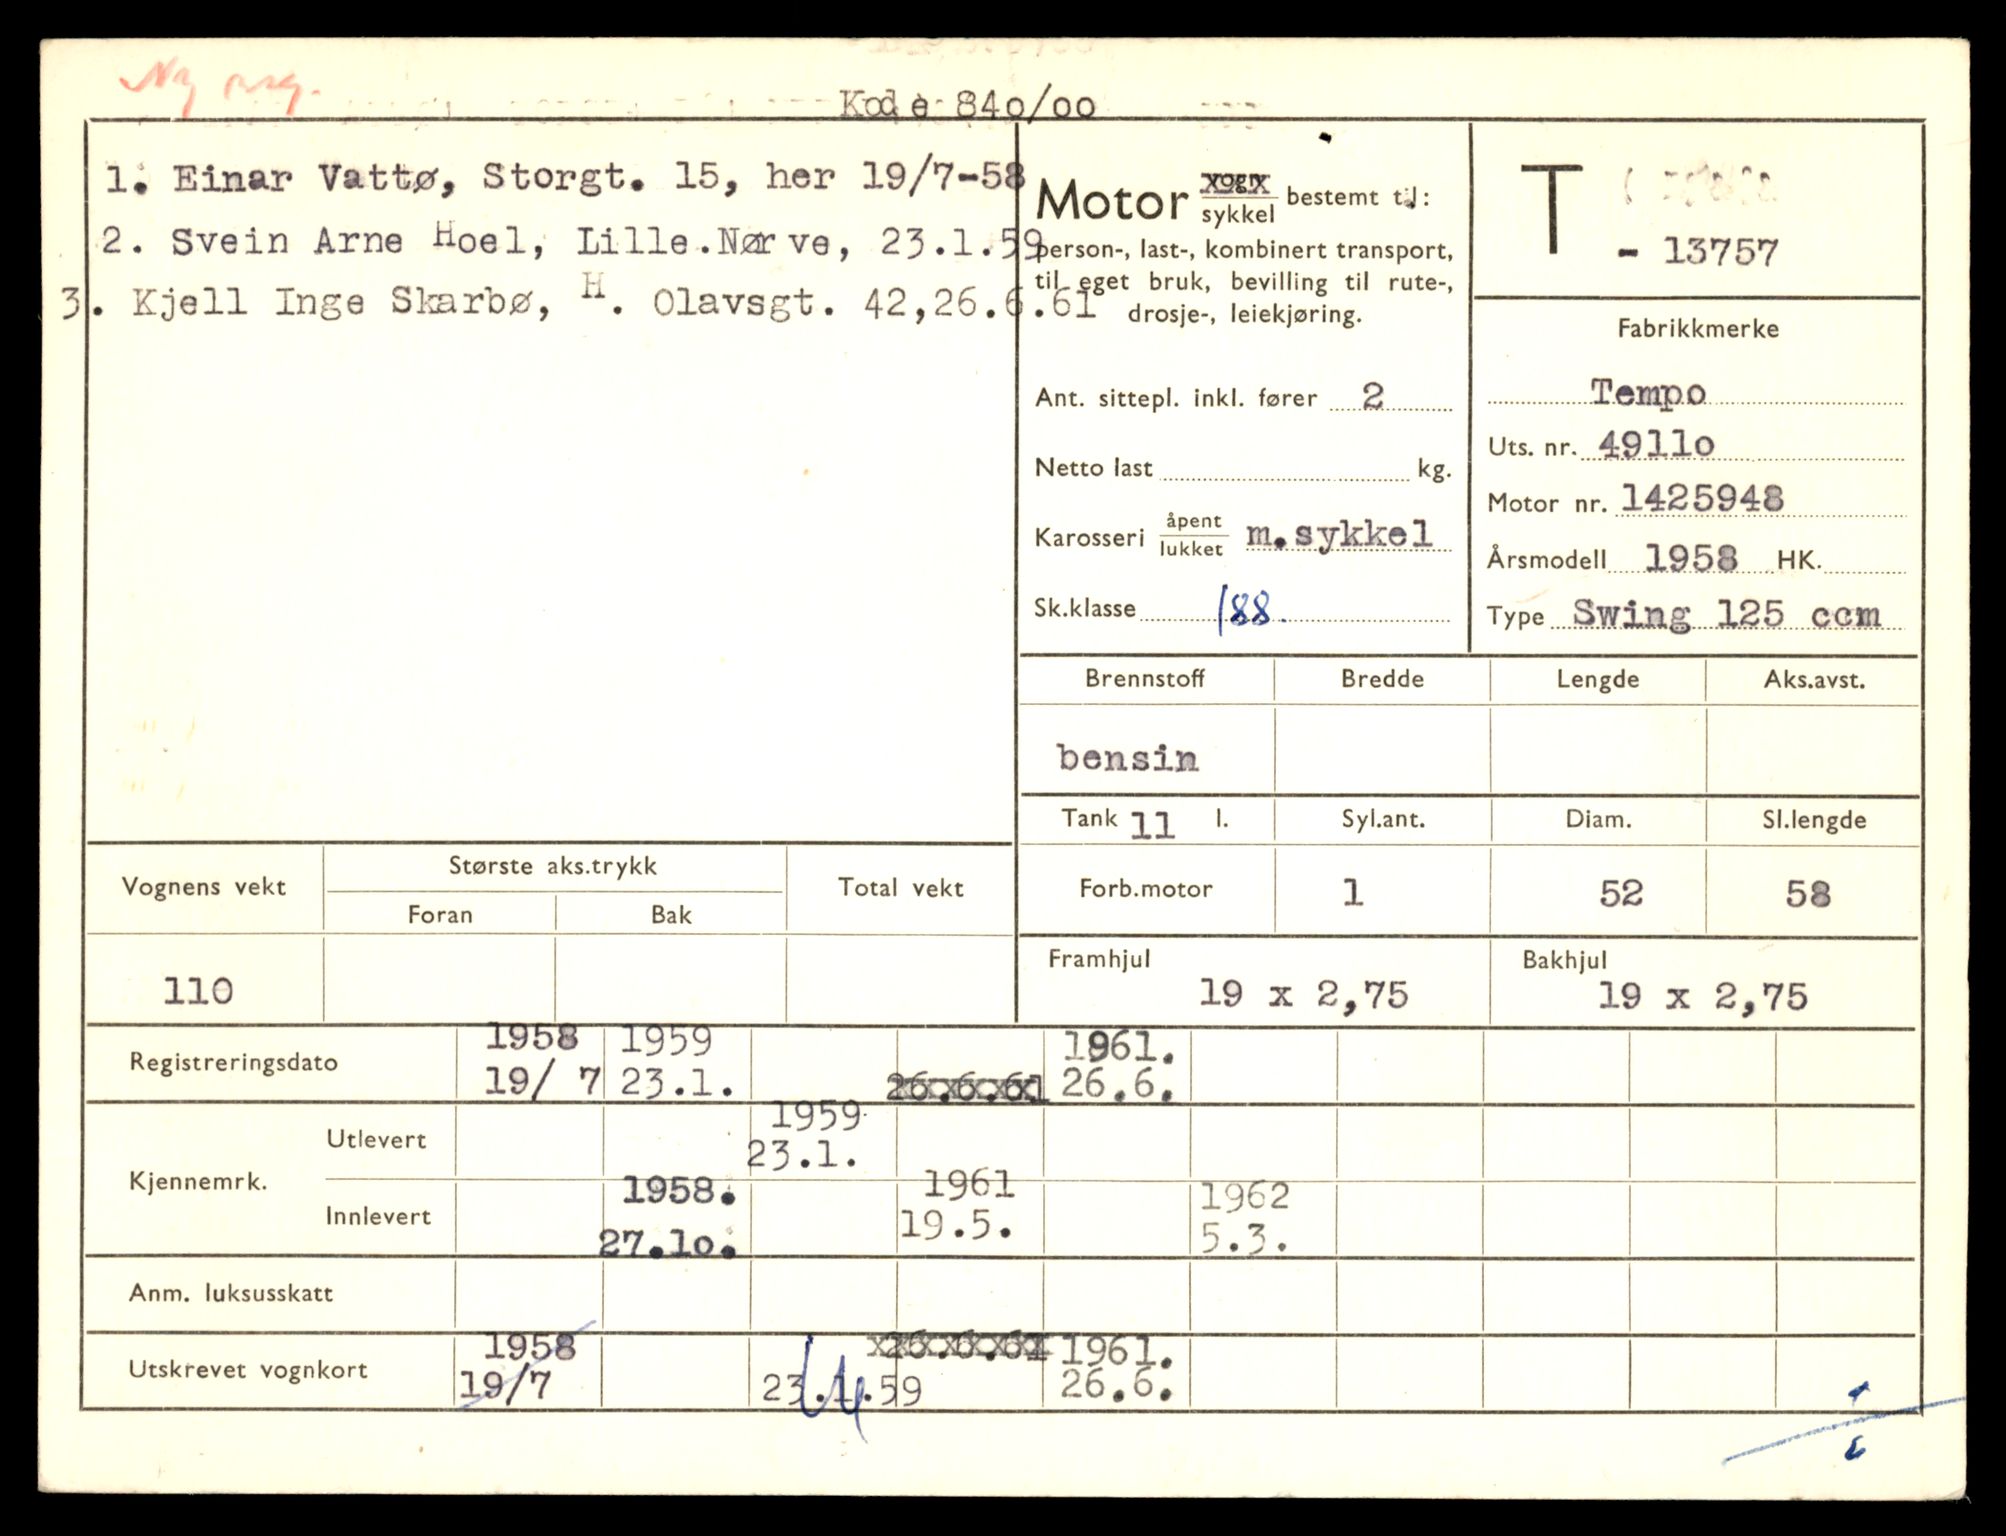 Ny
Kode 840/00
1. Einar Vattø, Storgt. 15, her 19/7-58
2. Svein Arne Hoel, Lille.Nørve, 23.1.59
3. Kjell Inge Skarbø, H. Olavsgt. 42,26.6.61
Motor vogn sykkel bestemt til:
person-, last-, kombinert transport,
til eget bruk, bevilling til rute-,
drosje-, leiekjøring.
Ant. sittepl. inkl. fører 2
Netto last kg.
Karosseri åpent lukket m.sykkel
Sk.klasse 188.
T - 13757
Fabrikkmerke
Tempo
Uts. nr. 49110
Motor nr. 1425948
Årsmodell 1958 HK.
Type Swing 125 ccm
Brennstoff Bredde Lengde Aks.avst.
bensin
Tank 11 l. Syl.ant. Diam. Sl.lengde
Forb.motor 1 52 58
Framhjul 19 x 2,75
Bakhjul 19 x 2,75
Vognens vekt Største aks.trykk Total vekt
Foran Bak
110
Registreringsdato 1958 1959 1961.
19/ 7 23.1. 26.6.61 26.6.
Kjennemrk.
Utlevert 1959
23.1.
Innlevert 1958. 1961 1962
27.10. 19.5. 5.3.
Anm. luksusskatt
Utskrevet vognkort 1958 26.6.61 1961.
19/7 23.1.59 26.6.